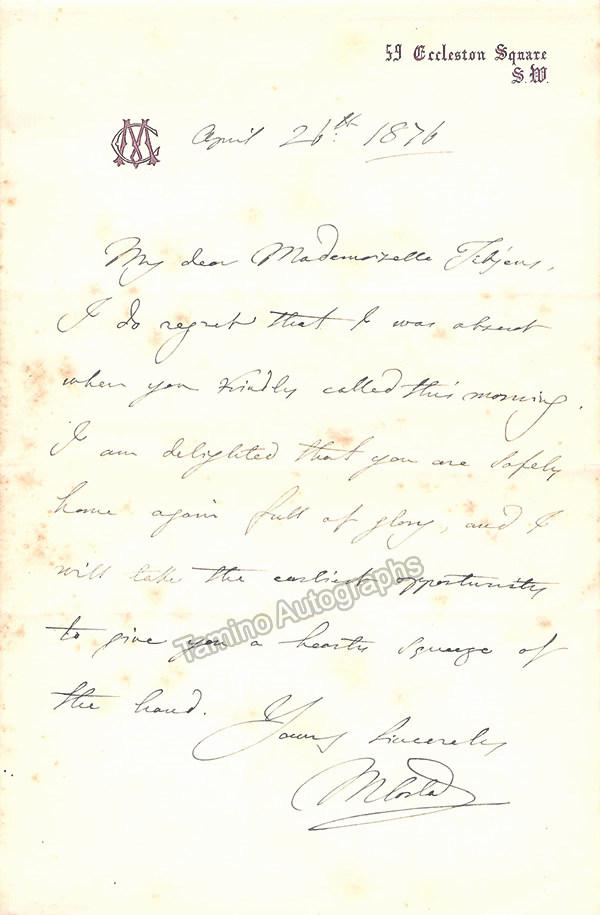 59 Eccleston Square
S.W.
MC
April 26th. 1876
My dear Mademoiselle Titjens,
I do regret that I was absent
when you kindly called this morning.
I am delighted that you are safely
home again full of glory, and I
will take the earliest opportunity
to give you a hearty squeeze of
the hand.
Yours sincerely
M Costa
Tamino Autographs